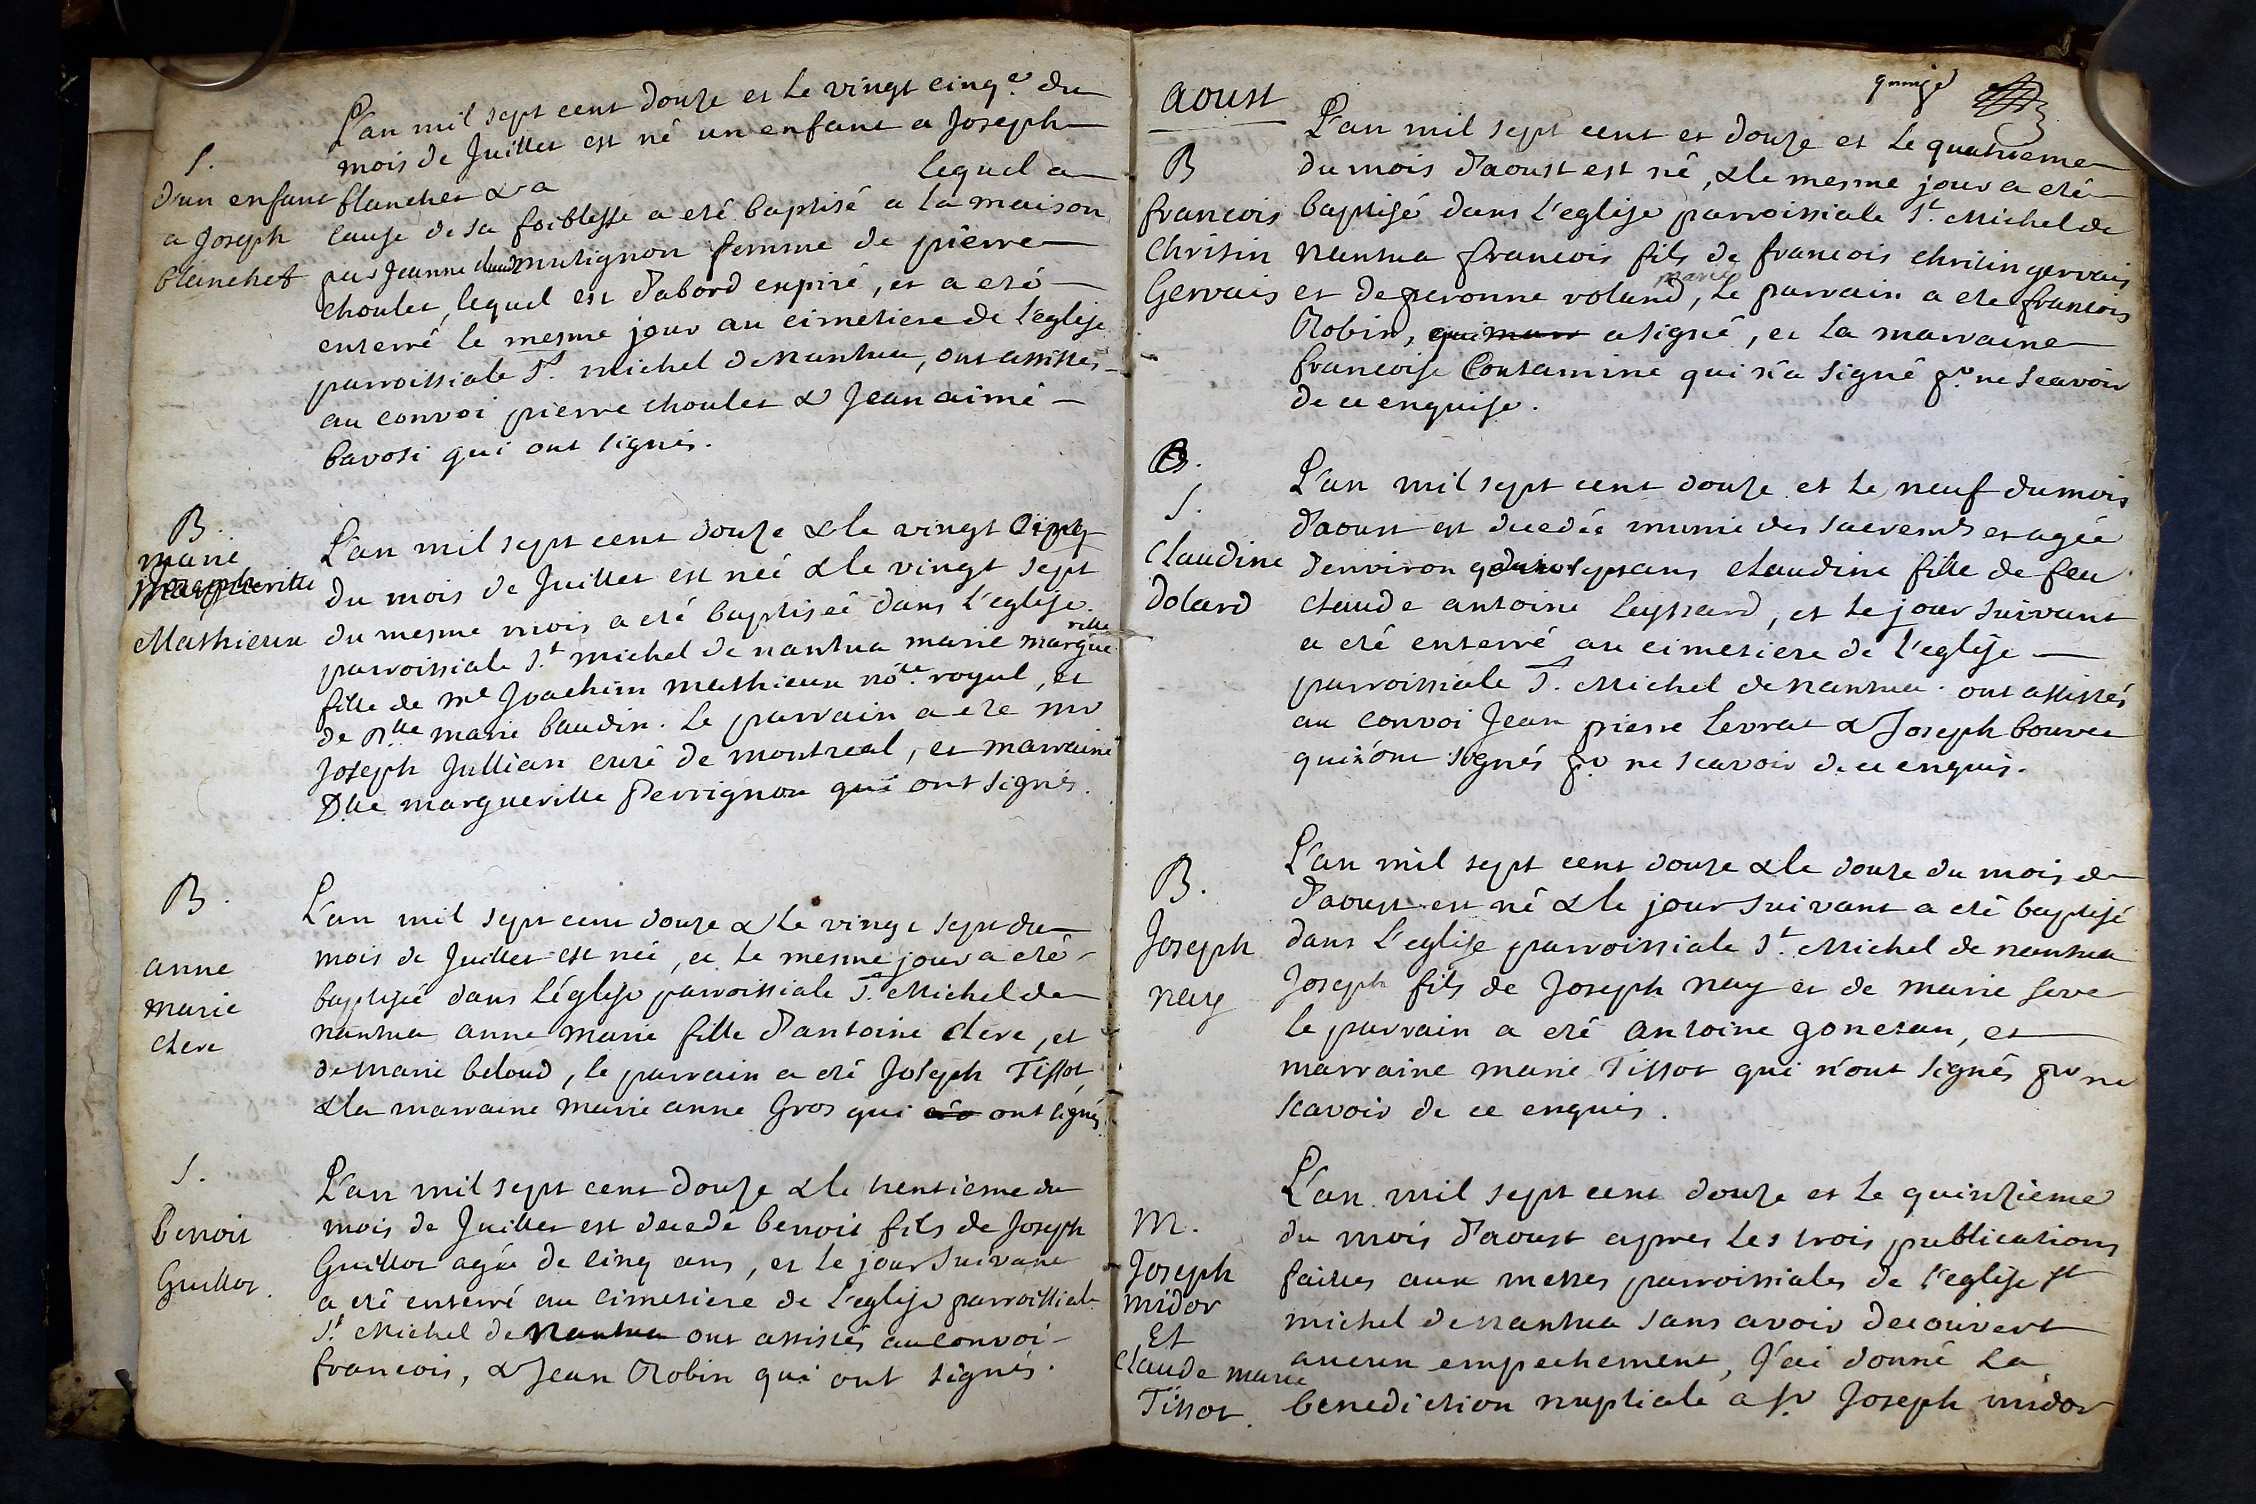 L'an mil sept cent douze et le vingt cinq.e du
mois de Juillet est né un enfant a Joseph
S.
d'un enfant
a Joseph
blanchet
blanchet & a lequel a
cause de sa foiblesse a eté baptisé a la maison
par Jeanne musignon femme de pierre
choulet, lequel est d'abord expiré, et a eté
enterré le mesme jour au cimetiere de l'eglise
parroissiale St. michel de nantua, ont assistés
au convoi pierre choulet & Jean aimé
bavosi qui ont signés.
B.
marie
marguerite
Mathieux
L'an mil sept cent douze & le vingt cinq
du mois de Juillet est née & le vingt sept
du mesme mois a eté baptiseé dans l'eglise
parroissiale St. michel de nantua marie margue
ritte
fille de me Joachim mathieux not.re royal, et
de Dlle marie baudin. Le parrain a ete mr
Joseph Jullian curé de montreal, et marraine
Dlle marguerite Perrignon qui ont signés.
B.
anne
marie
clere
L'an mil sept cent douze & le vingt sept du
mois de Juillet est neé, et le mesme jour a eté
baptiseé dans l'église parroissiale St. Michel de
nantua anne marie fille d'antoine clere, et
de marie beloud, le parrain a eté Joseph Tissot,
& la marraine marie anne Gros qui ont signés.
S.
Benoit
Guillot.
L'an mil sept cent douze & le trentieme du
mois de Juillet est decedé benoit fils de Joseph
Guillot agée de cinq ans, et le jour suivant
a eté enterré au cimetiere de l'eglise parroissiale
St. Michel de Nantua ont assistés au convoi
francois, & Jean Robin qui ont signés.
aoust
B
francois
Christin
Gervais
L'an mil sept cent et douze et le quatrieme
du mois d'aoust est né, & le mesme jour a eté
baptisé dans l'eglise parroissiale St. Michel de
nantua francois fils de francois christin gervais
marie
et de peronne voland, le parrain a ete francois
Robin, a signé, et la marraine
francoise Contamine qui n'a signé pr. ne scavoir
de ce enquise.
B.
S.
Claudine
dolard
L'an mil sept cent douze et le neuf du mois
d'aoust est decedée munie des sacrements et agée
d'environ ans claudine fille de feu
claude antoine Leyssard, et le jour suivant
a eté enterré au cimetiere de l'eglise
parroissiale St. Michel de nantua. ont assistés
au convoi Jean pierre Levrat & Joseph bouvet
qui n'ont signés pr. ne scavoir de ce enquis.
B.
Joseph
nay
L'an mil sept cent douze & le douze du mois de
d'aoust est né & le jour suivant a eté baptisé
dans l'eglise parroissiale St. Michel de nantua
Joseph fils de Joseph nay et de marie seve
le parrain a eté antoine gonetan, et
marraine marie Tissot qui n'ont signés pr. ne
scavoir de ce enquis.
M.
Joseph
midor
Et
claude marie
Tissot.
L'an mil sept cent douze et le quinzieme
du mois d'aoust apres les trois publications
faittes aux messes parroissiales de l'eglise st
michel de nantua sans avoir decouvert
aucun empechement, J'ai donné la
benediction nuptiale a sr Joseph midor